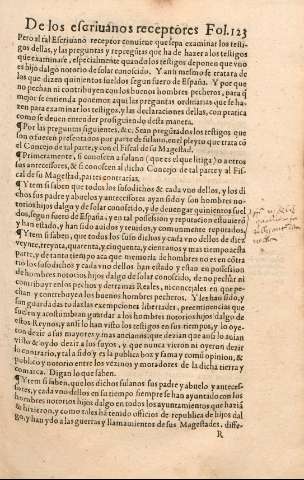 De los escriuanos receptores Fol.123
Pero al tal Escriuano receptor conuiene que sepa examinar los testi
gos dellas, y las preguntas y repreguntas que ha de hazer a los testigos
que examinare, especialmente quando los testigos deponen que vno
es hijodalgo notorio de solar conoscido. Y ansi mesmo se trata de
los que dizen quinientos sueldos segun fuero de España. Y por que
no pechan ni contribuyen con los buenos hombres pecheros, para q̃
mejor se entienda ponemos aqui las preguntas ordinarias que se ha-
zen para examinar los testigos, y las declaraciones dellas, con pratica
como se deuen entender prosiguiendo desta manera.
¶ Por las preguntas siguientes, &c. Sean preguntados los testigos que
son o fueren presentados por parte de fulano, en el pleyto que trata cõ
el Concejo de tal parte, y con el Fiscal de su Magestad.
¶ Primeramente, si conoscen a fulano (que es el que litiga) o a otros
sus antecessores, & si conoscen al dicho Concejo de tal parte y al Fis-
cal de su Magestad, partes contrarias.
¶ Ytem si saben que todos los susodichos & cada vno dellos, y los di
chos sus padre y abuelo y antecessores ayan sido y son hombres no-
torios hijos dalgo y de solar conoscido, y de deuengar quinientos suel
dos, segun fuero de España, y en tal possession y reputacion estuuierõ
y han estado, y han sido auidos y tenidos, y comunmente reputados,
¶ Ytem si saben, que todos los suso dichos y cada vno dellos de diez
veynte, treynta, quarenta, cinquenta, y cien años y mas tiempo a esta
parte, y de tanto tiempo aca que memoria de hombres no es en cõtra
rio los susodichos y cada vno dellos han estado y estan en possession
de hombres notorios hijos dalgo de solar conoscido, de no pechar ni
contribuyr en los pechos y derramas Reales, ni concejales en que pe-
chan y contribuyen los buenos hombres pecheros. Y les han sido, y
son guardadas todas las exempciones libertades, preeminencias que
suelen y acostumbran guardar a los hombres notorios hijos dalgo de
estos Reynos, y ansi lo han visto los testigos en sus tiempos, y lo oye-
ron dezir a sus mayores y mas ancianos, que dezian que ansi lo auian
visto & oydo dezir a los suyos, y que nunca vieron ni oyeron dezir
lo contrario, y tal a sido y es la publica boz y fama y comũ opinion, &
publico y notorio entre los vezinos y moradores de la dicha tierra y
comarca. Digan lo que saben.
¶ Ytem si saben, que los dichos fulanos sus padre y abuelo y anteces-
sores, y cada vno dellos en su tiempo siempre se han ayuntado con los
hombres notorios hijos dalgo en todos los ayuntamientos que haziã
& hizieron, y como tales hã tenido officios de republica de hijos dal
go, y han ydo a las guerras y llamamientos de sus Magestades, diffe-
R